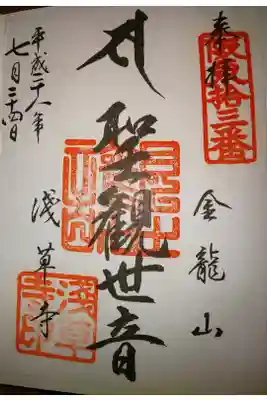 奉拝
坂東拾三番
金龍山
聖観世音
浅草寺
平成二十八年
七月二十四日